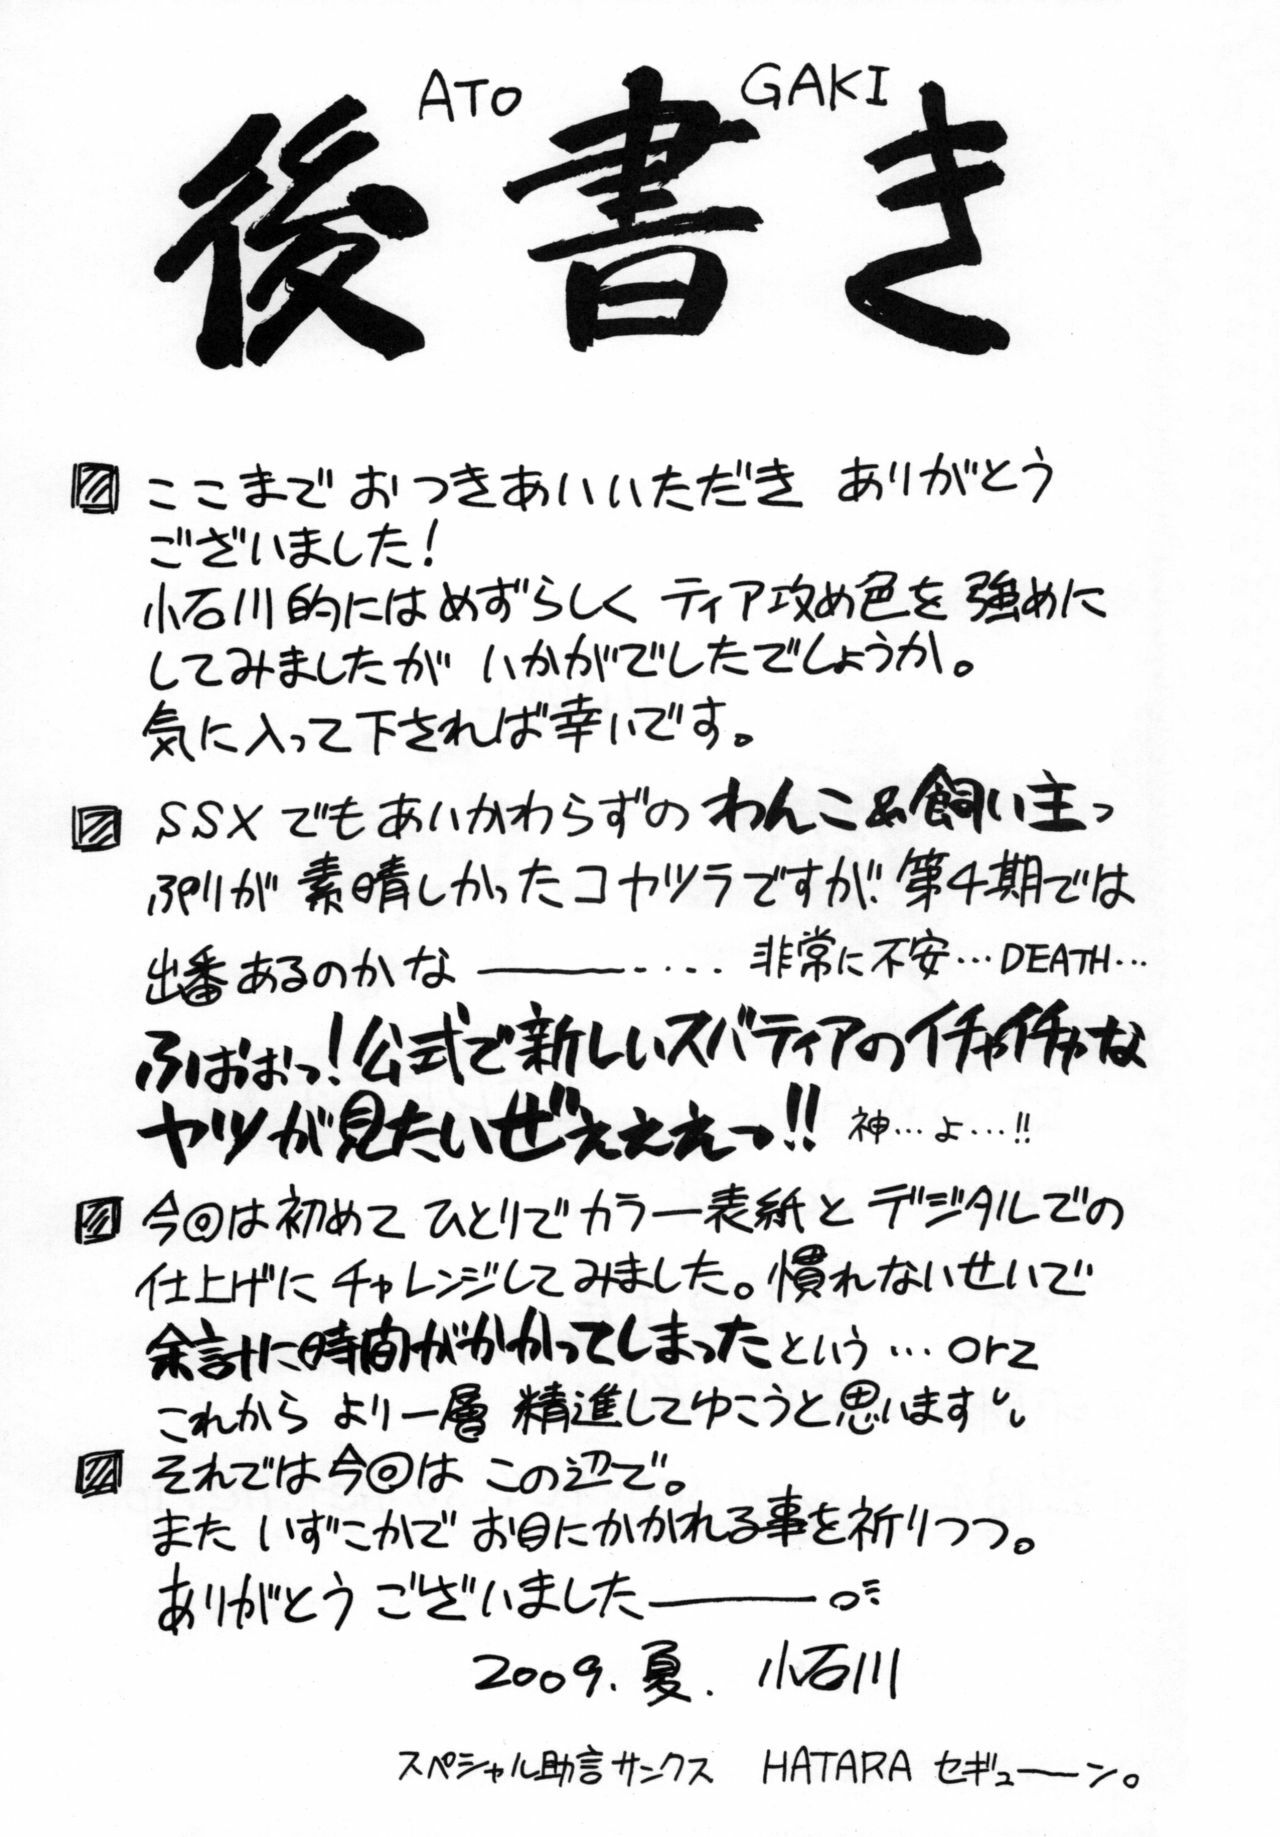 ATO GAKI
後書き
ここまでおつきあいいただき ありがとう
ございました!
小石川的にはめずらしく ティア攻め色を強めに
してみましたが いかがでしたでしょうか。
気に入って下されば幸いです。
SSXでもあいかわらずのわんこ&飼い主っ
ぷりが素晴しかったコヤツラですが、第4期では
出番あるのかな――‥‥ 非常に不安…DEATH…
ふはぉぉっ!公式で新しいスバティアのイチャイチャな
ヤツが見たいぜぇぇぇっ!! 神…よ…!!
今回は初めてひとりでカラー表紙とデジタルでの
仕上げにチャレンジしてみました。慣れないせいで
余計に時間がかかってしまったという…orz
これからより一層 精進してゆこうと思います
それでは今回は この辺で。
また いずこかで お目にかかれる事を祈りつつ。
ありがとうございました――
2009.夏. 小石川
スペシャル助言サンクス HATARA セギューーン。